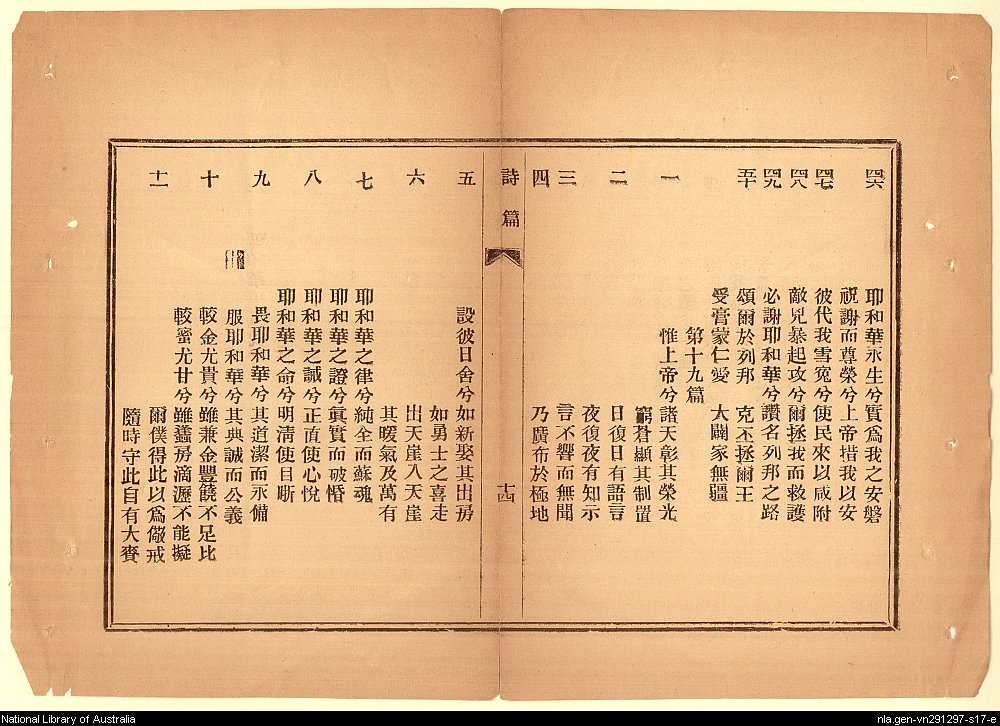 四六 耶和華永生兮實爲我之安磐
祝謝而尊榮兮上帝措我以安
四七 彼代我雪冤兮使民來以咸附
四八 敵兇暴起攻兮爾拯我而救護
四九 必謝耶和華兮讚名列邦之路
五十 頌爾於列邦 克丕拯爾王
受膏蒙仁愛 大闢家無疆
第十九篇
一 惟上帝兮諸天彰其榮光
窮蒼顯其制置
二 日復日有語言
夜復夜有知示
三 言不響而無聞
四 乃廣布於極地
詩篇 十四
五 設彼日舍兮如新娶其出房
如勇士之喜走
六 出天崖入天崖
其暖氣及萬有
七 耶和華之律兮純全而蘇魂
耶和華之證兮眞實而破惛
八 耶和華之誡兮正直使心悅
耶和華之命兮明淸使目晰
九 畏耶和華兮其道潔而永備
服耶和華兮其典誠而公義
十 較金尤貴兮雖兼金豐饒不足比
較蜜尤甘兮雖蠭房滴瀝不能擬
十一 爾僕得此以爲儆戒
隨時守此自有大賚
National Library of Australia
nla.gen-vn291297-s17-e